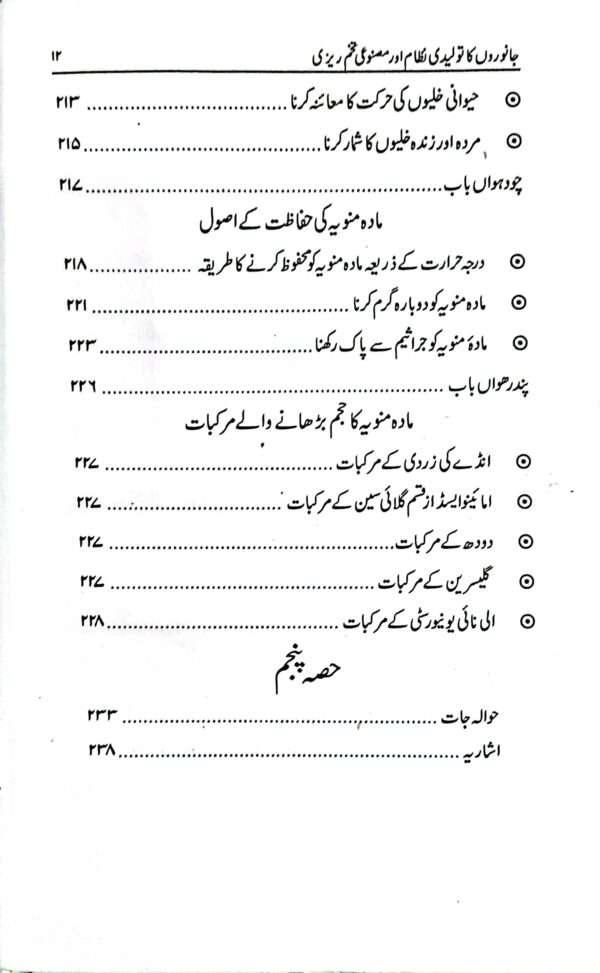 جانوروں کا تولیدی نظام اور مصنوعی تخم ریزی ۱۲
⊙ حیوانی خلیوں کی حرکت کا معائنہ کرنا ........................................ ۲۱۳
⊙ مردہ اور زندہ خلیوں کا شمار کرنا ........................................ ۲۱۵
چودہواں باب ........................................ ۲۱۷
مادہ منویہ کی حفاظت کے اصول
⊙ درجہ حرارت کے ذریعہ مادہ منویہ کو محفوظ کرنے کا طریقہ .................... ۲۱۸
⊙ مادہ منویہ کو دوبارہ گرم کرنا ........................................ ۲۲۱
⊙ مادۂ منویہ کو جراثیم سے پاک رکھنا ........................................ ۲۲۳
پندرھواں باب ........................................ ۲۲۶
مادہ منویہ کا حجم بڑھانے والے مرکبات
⊙ انڈے کی زردی کے مرکبات ........................................ ۲۲۷
⊙ امائینو ایسڈ از قسم گلائی سین کے مرکبات .............................. ۲۲۷
⊙ دودھ کے مرکبات ........................................ ۲۲۷
⊙ گلیسرین کے مرکبات ........................................ ۲۲۷
⊙ الی نائی یونیورسٹی کے مرکبات ........................................ ۲۲۸
حصہ پنجم
حوالہ جات ........................................ ۲۳۳
اشاریہ ........................................ ۲۳۸